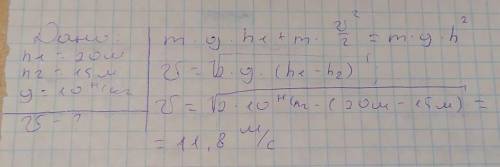 Дано:
h1 = 20м
h2 = 15м
g = 10 Н/кг
v - ?
m · g · h1 + m · v²/2 = m · g · h²
v = √2 · g · (h1 - h2)
v = √2 · 10 Н/кг · (20м - 15м) =
= 11,8 м/с